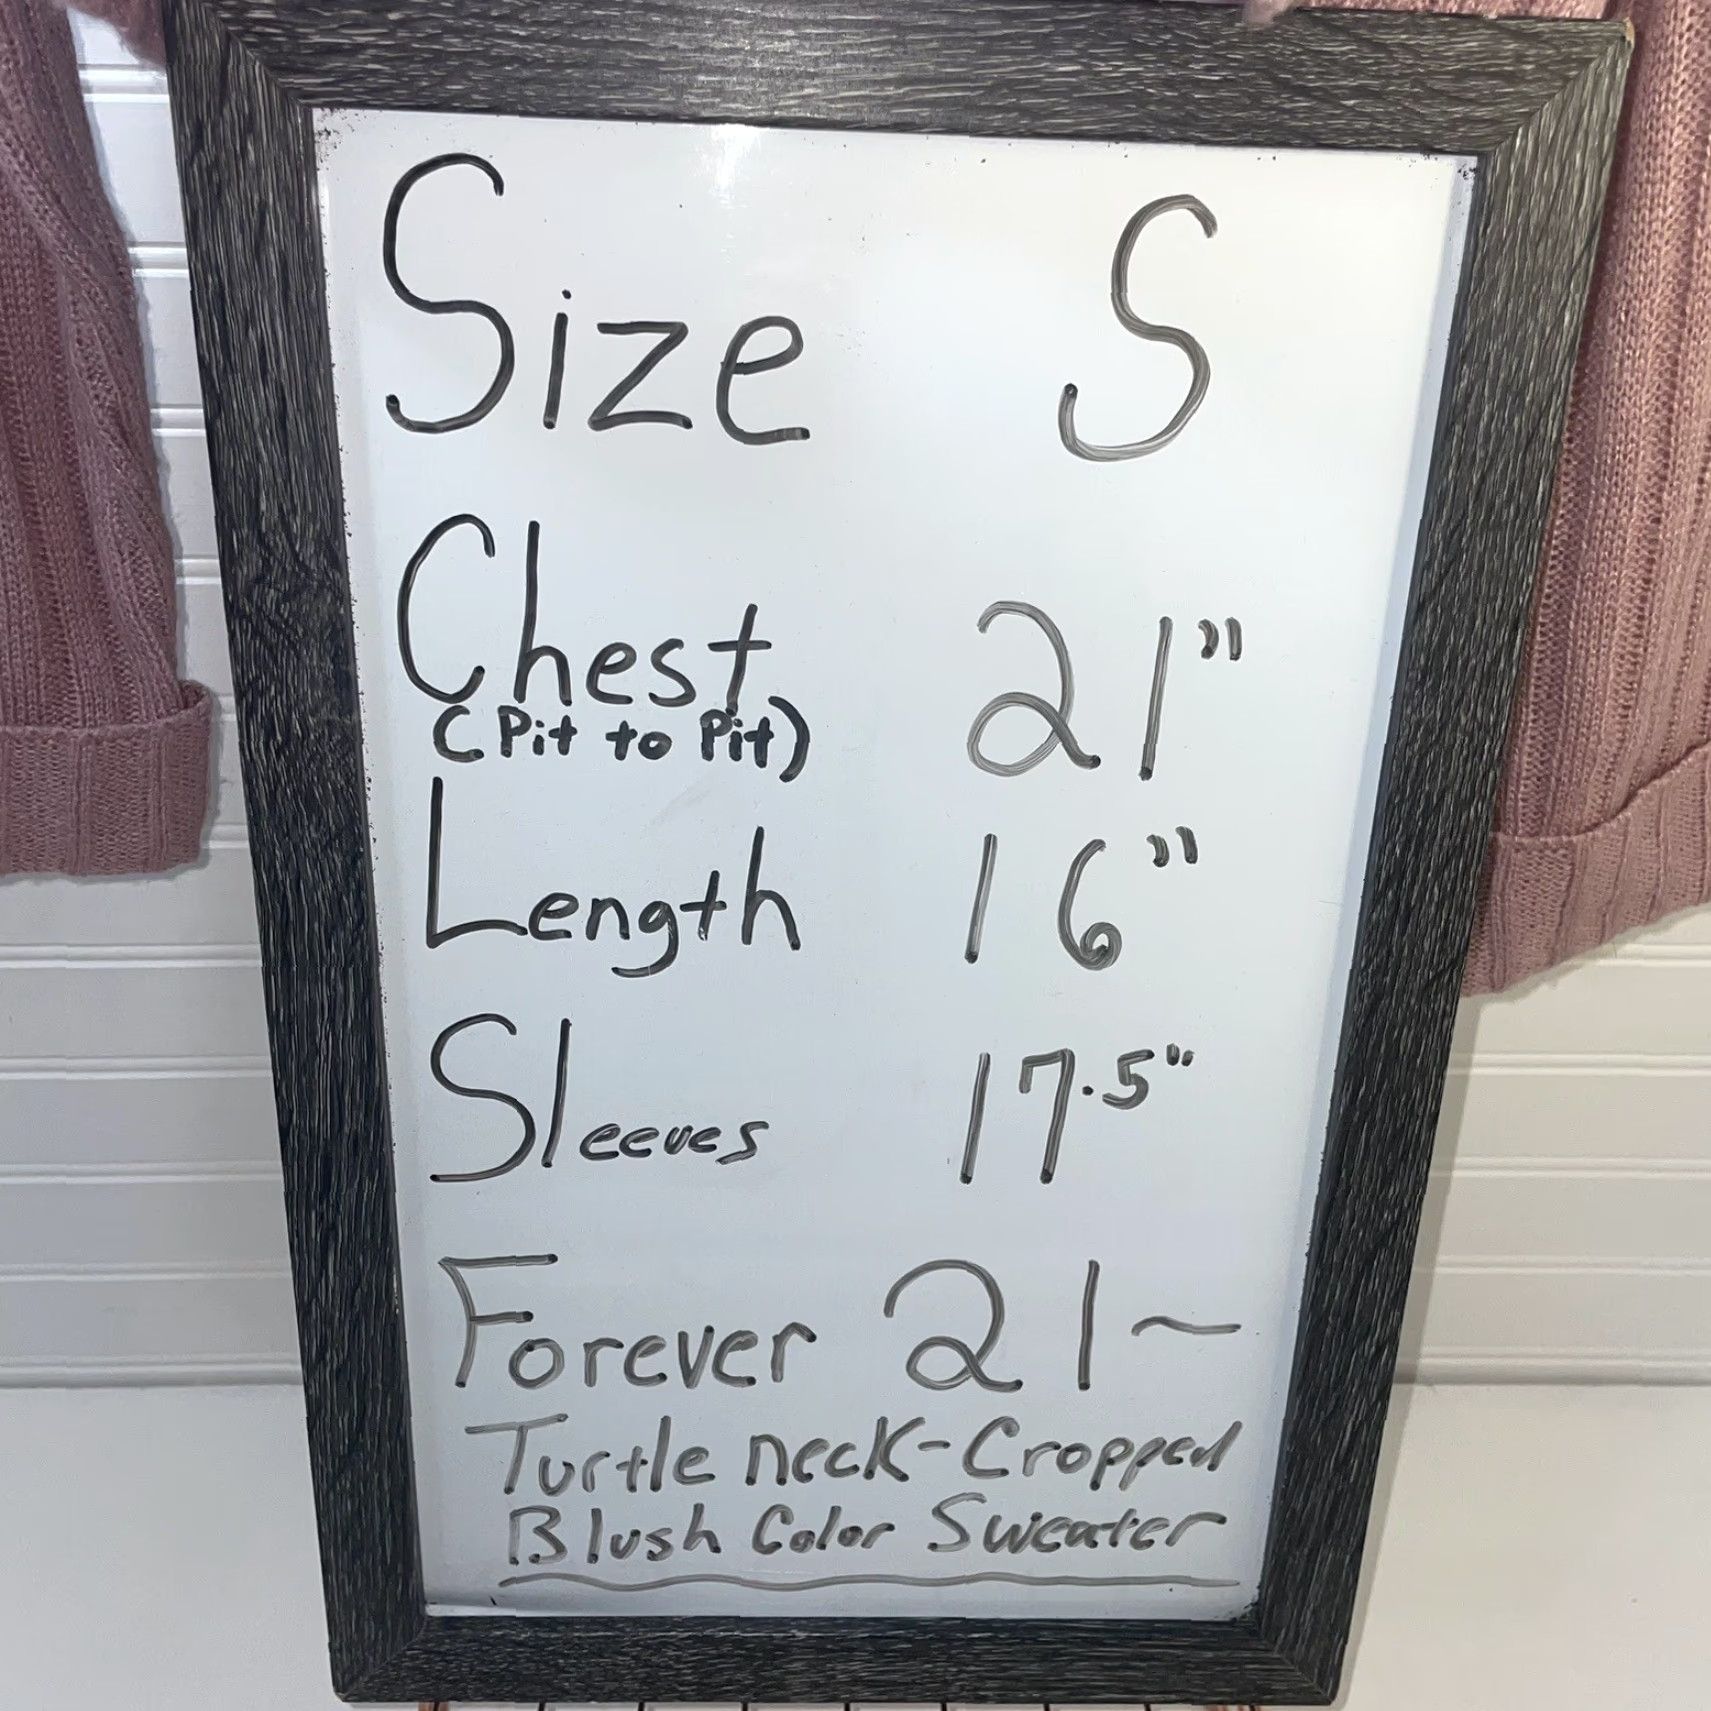 Size S
Chest 21"
(Pit to Pit)
Length 16"
Sleeves 17.5"
Forever 21~
Turtle neck-Cropped
Blush Color Sweater